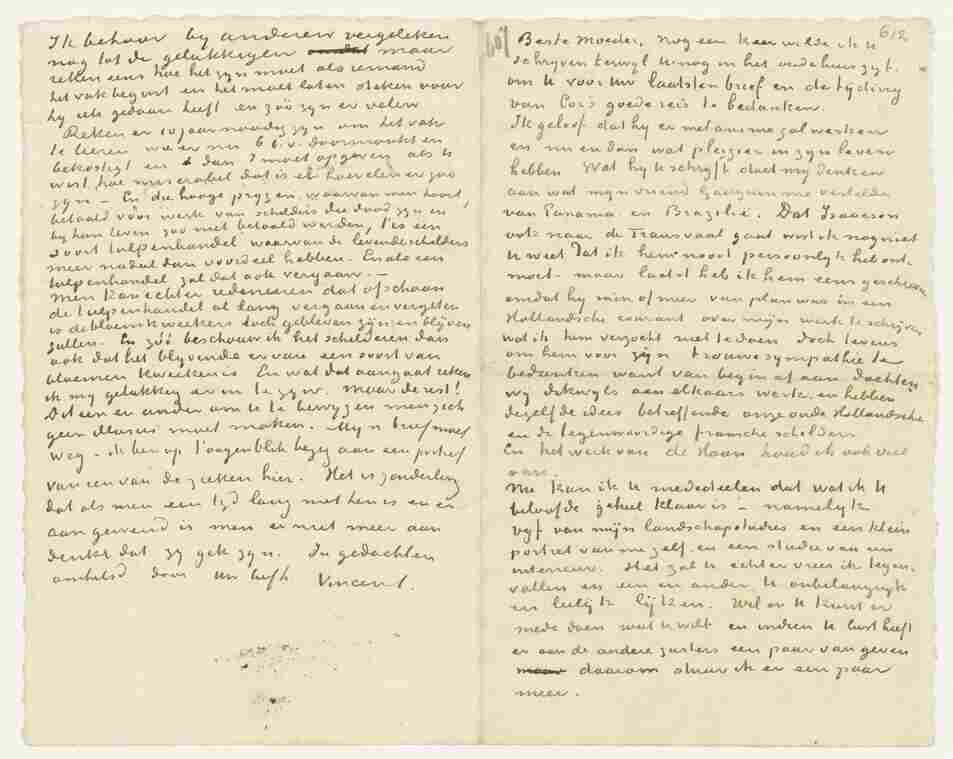 Ik behoor by anderen vergeleken
nog tot de gelukkigen maar
reken eens hoe het zyn moet als iemand
het vak begint en het moet laten steken voor
hy iets gedaan heeft en zóó zyn er velen.
Reken er 10 jaar noodig zyn om het vak
te leeren wie er nu 6 b.v. doorsnorkt en
bekostigt en dan moet opgeven als 't
wist hoe miserabel dat is en hoevelen er zoo
zyn – En die hooge pryzen, waarvan men hoort,
betaald vóór werk van schilders die dood zyn en
by hun leven zoo niet betaald werden, 't is een
soort tulpenhandel waarvan de levende schilders
meer nadeel dan voordeel hebben. En als een
tulpenhandel zal dat ook vergaan. –
Men kan echter redeneeren dat ofschoon
de tulpenhandel al lang vergaan en vergeten
is de bloemkweekers toch gebleven zyn en blyven
zullen. En zóó beschouw ik het schilderen dan
ook dat het blyvende er van een soort van
bloemen kweeken is. En wat dat aangaat reken
ik my gelukkig er in te zyn. Maar de rest!
Dit een en ander om U te bewyzen men zich
geen illusies moet maken. – Myn brief moet
weg – ik ben op 't oogenblik bezig aan een portret
van een van de zieken hier. Het is zonderling
dat als men een tyd lang met hen is en er
aan gewend is men er niet meer aan
denkt dat zy gek zyn. In gedachten
omhelsd door Uw liefh
Vincent.
601
612
Beste Moeder, nog een keer wilde ik U
schryven terwyl U nog in het oude huis zyt.
om U voor Uw laatsten brief en de tyding
van Cor's goede reis te bedanken.
Ik geloof dat hy er met animo zal werken
en nu en dan wat plezier in zyn leven
hebben. Wat hy schryft doet my denken
aan wat myn vriend Gauguin me vertelde
van Panama en Brazilië. Dat Isaäcson
ook naar de Transvaal gaat wist ik nog niet
U weet dat ik hem nooit persoonlyk heb ont-
moet – maar laatst heb ik hem eens geschreven
omdat hy min of meer van plan was in een
Hollandsche courant over mijn werk te schrijven
wat ik hem verzocht niet te doen doch tevens
om hem voor zyn trouwe sympathie te
bedanken want van begin af aan dachten
wy dikwyls aan elkaars werk en hebben
dezelfde idees betreffende onze oude Hollandsche
en de tegenwoordige fransche schilders
En het werk van de Haan houd ik ook veel
van.
Nu kan ik U mededeelen dat wat ik U
beloofde geheel klaar is – namelyk
vyf van mijn landschapstudies en een klein
portret van mezelf en een studie van een
interieur. Het zal U echter vrees ik tegen-
vallen en een en ander U onbelangryk
en leelyk lijken. Wil en U kunt er
mede doen wat U wilt en indien U lust heeft
er aan de andere zusters een paar van geven
daarom stuur ik er een paar
meer.